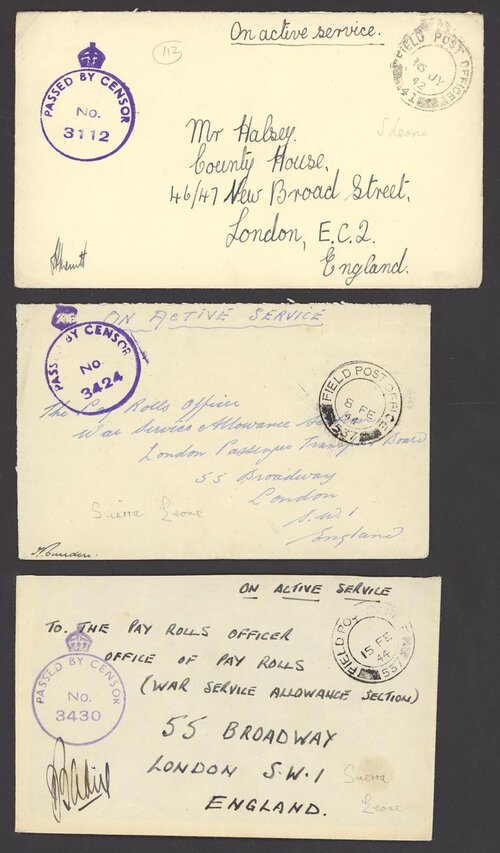 On active service.
112
FIELD POST OFFICE
15 JY
42
PASSED BY CENSOR
No.
3112
S Leone
Mr Halsey.
County House,
46/47 New Broad Street,
London, E.C.2.
England.
ON ACTIVE SERVICE
PASSED BY CENSOR
No
3424
FIELD POST OFFICE
6 FE
44
537
The Pay Rolls Officer
War Service Allowance
London Passenger Transport Board
55 Broadway
London
S.W.1
England
Sierra Leone
ON ACTIVE SERVICE
TO. THE PAY ROLLS OFFICER
OFFICE OF PAY ROLLS
(WAR SERVICE ALLOWANCE SECTION)
FIELD POST
15 FE
44
537
PASSED BY CENSOR
No.
3430
55 BROADWAY
LONDON S.W.1
ENGLAND.
Sierra
Leone